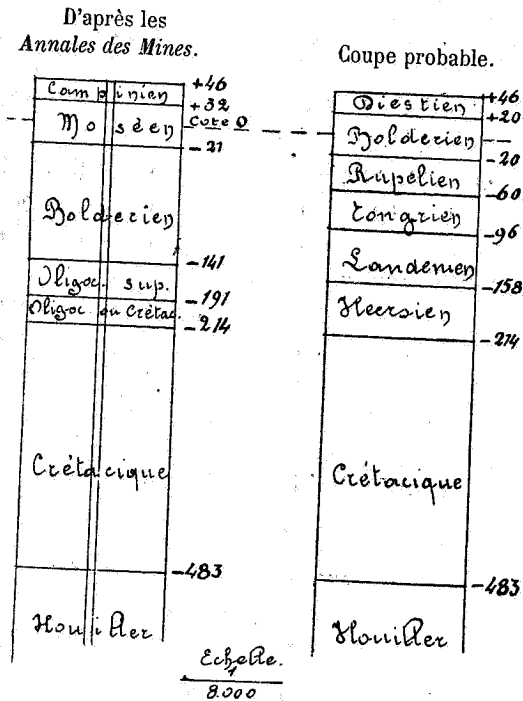 D'après les
Annales des Mines.
+46
Campinien
+32
Moséen
Cote 0
-21
Bolderien
-141
Oligoc. sup.
-191
Oligoc. ou Crétac.
-214
Crétacique
-483
Houiller
Coupe probable.
+46
Diestien
+20
Bolderien
-20
Rupélien
-60
Tongrien
-96
Landenien
-158
Heersien
-214
Crétacique
-483
Houiller
Echelle.
1
8.000